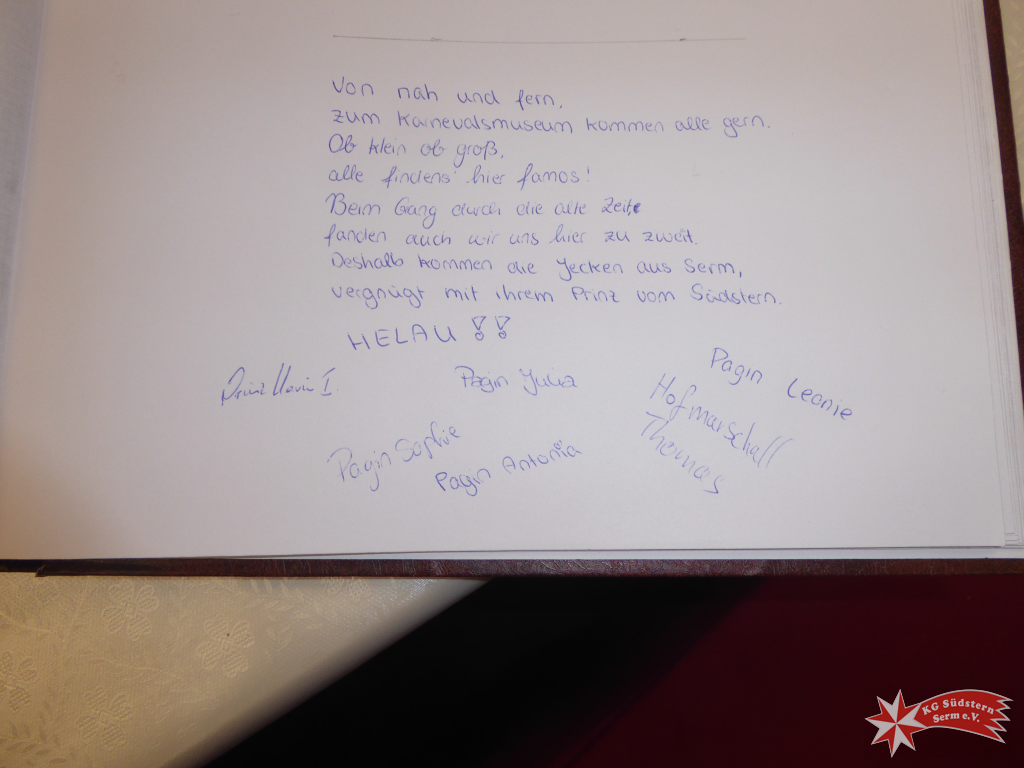 Von nah und fern,
zum Karnevalsmuseum kommen alle gern.
Ob klein ob groß,
alle findens' hier famos!
Beim Gang durch die alte Zeit,
fanden auch wir uns hier zu zweit.
Deshalb kommen die Jecken aus Serm,
vergnügt mit ihrem Prinz vom Südstern.
HELAU !!
Prinz I.
Pagin Julia
Pagin Leonie
Hofmarschall
Thomas
Pagin Sophie
Pagin Antonia
KG Südstern
Serm e.V.